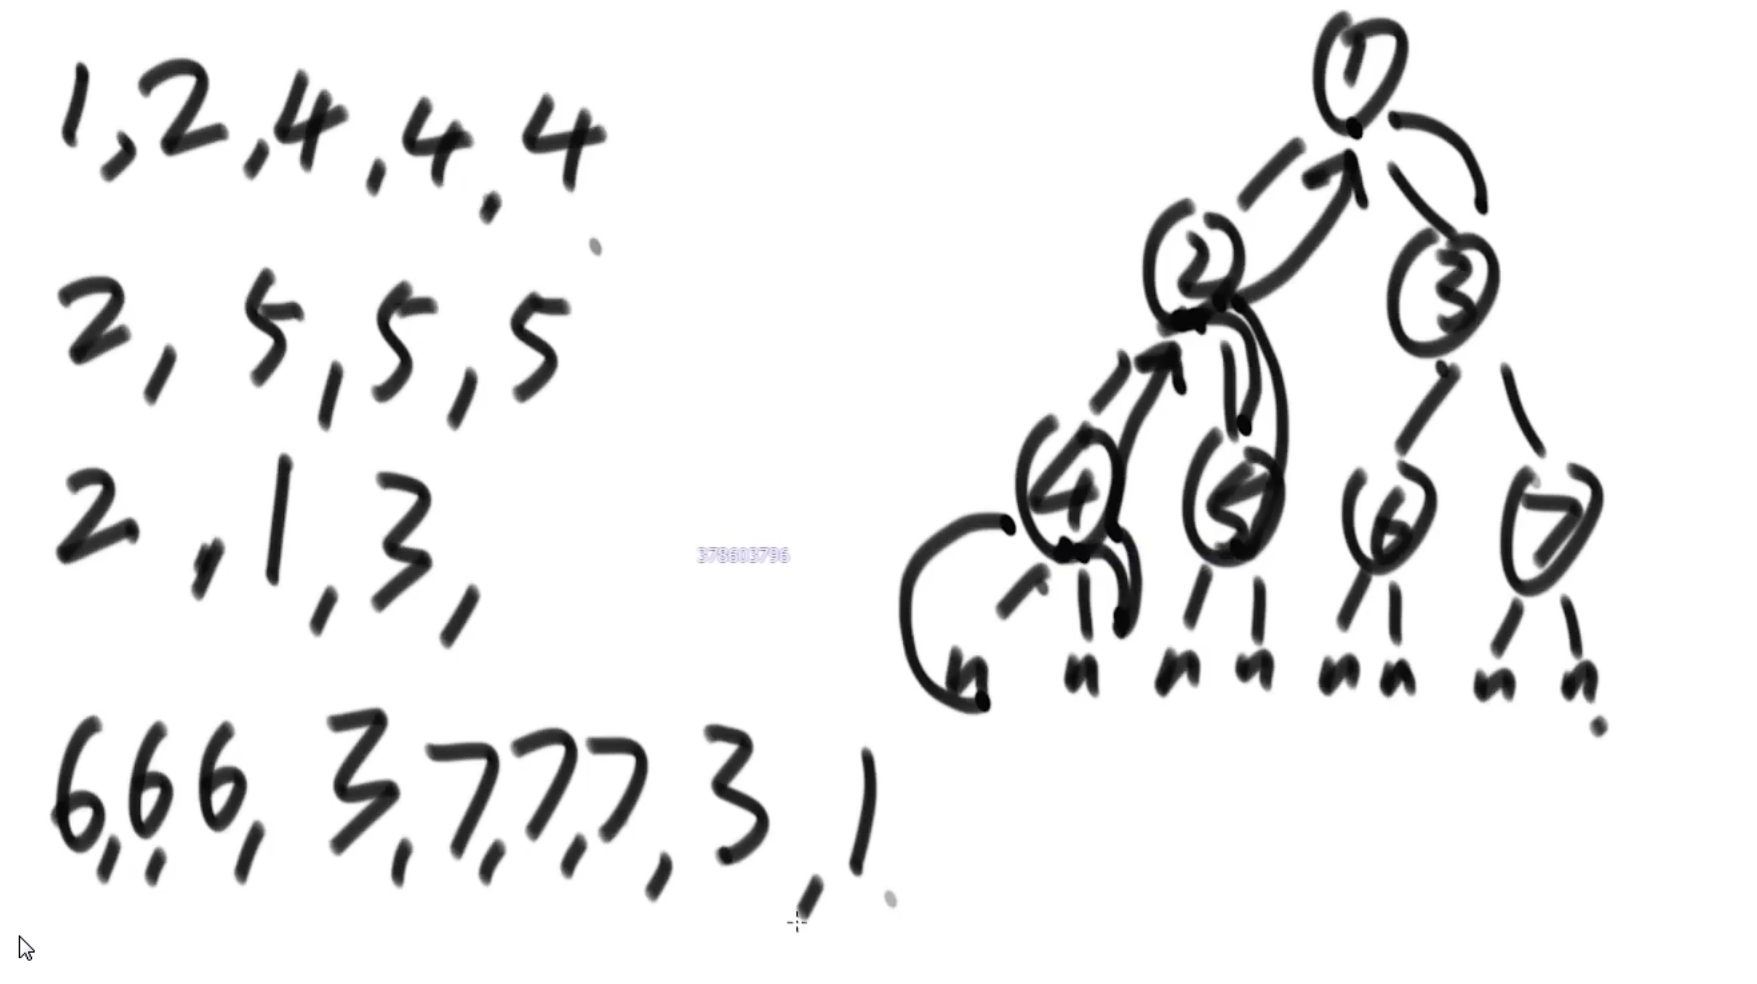 1,2,4,4,4
2,5,5,5
2,1,3,
6,6,6,3,7,7,7,3,1
378603796
1
2 3
4 5 6 7
n n n n n n n n